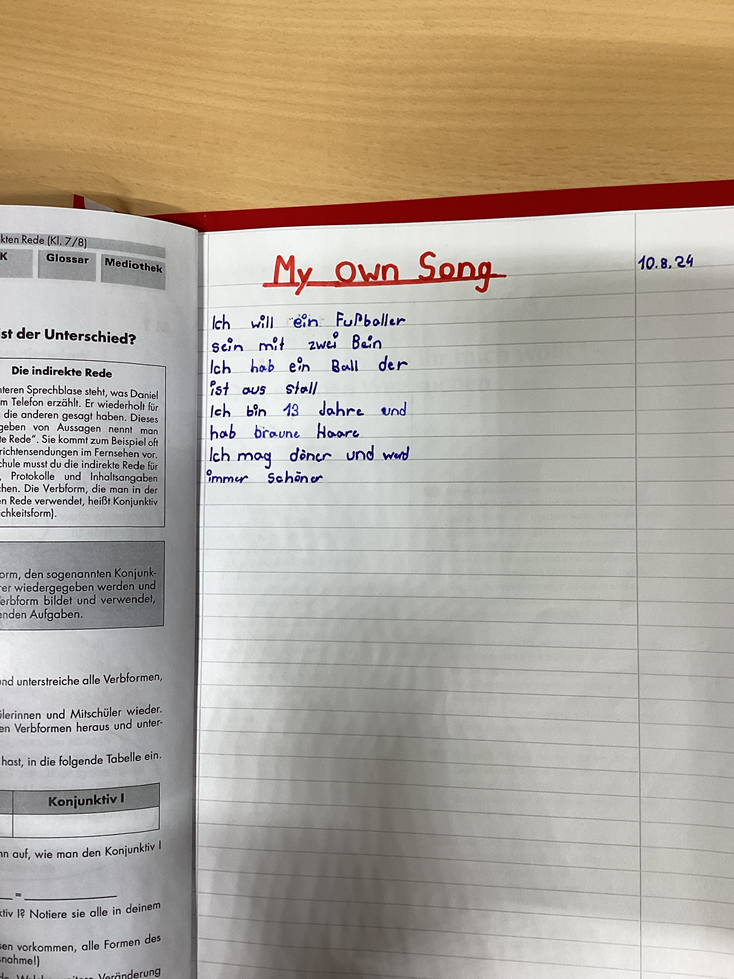 kten Rede (Kl. 7/8)
K
Glossar
Mediothek
st der Unterschied?
Die indirekte Rede
nteren Sprechblase steht, was Daniel
m Telefon erzählt. Er wiederholt für
die anderen gesagt haben. Dieses
geben von Aussagen nennt man
te Rede“. Sie kommt zum Beispiel oft
richtensendungen im Fernsehen vor.
chule musst du die indirekte Rede für
, Protokolle und Inhaltsangaben
chen. Die Verbform, die man in der
en Rede verwendet, heißt Konjunktiv
chkeitsform).
orm, den sogenannten Konjunk-
rer wiedergegeben werden und
erbform bildet und verwendet,
enden Aufgaben.
und unterstreiche alle Verbformen,
ülerinnen und Mitschüler wieder.
en Verbformen heraus und unter-
hast, in die folgende Tabelle ein.
Konjunktiv I
nn auf, wie man den Konjunktiv I
=
ktiv I? Notiere sie alle in deinem
sen vorkommen, alle Formen des
snahme!)
Veränderung
My own Song
10.8.24
Ich will ein Fußballer
sein mit zwei Bein
Ich hab ein Ball der
ist aus stall
Ich bin 13 Jahre und
hab braune Haare
Ich mag döner und werd
immer schöner